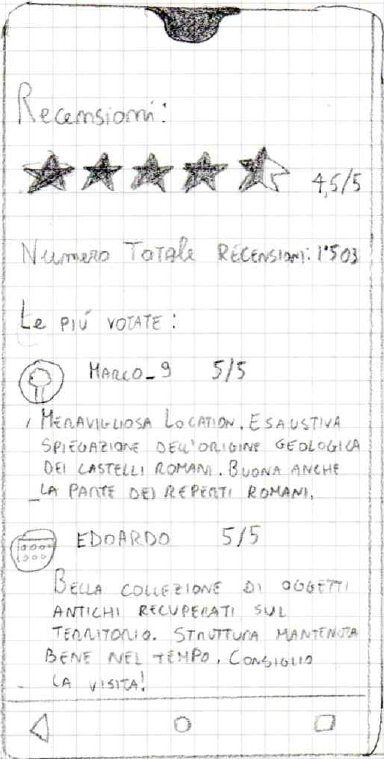 Recensioni:
4,5/5
Numero Totale RECENSIONI: 1'503
Le PIÚ VOTATE:
MARCO_9 5/5
MERAVIGLIOSA LOCATION. ESAUSTIVA
SPIEGAZIONE DELL'ORIGINE GEOLOGICA
DEI CASTELLI ROMANI. BUONA ANCHE
LA PARTE DEI REPERTI ROMANI.
EDOARDO 5/5
BELLA COLLEZIONE DI OGGETTI
ANTICHI RECUPERATI SUL
TERRITORIO. STRUTTURA MANTENUTA
BENE NEL TEMPO. CONSIGLIO
LA VISITA!